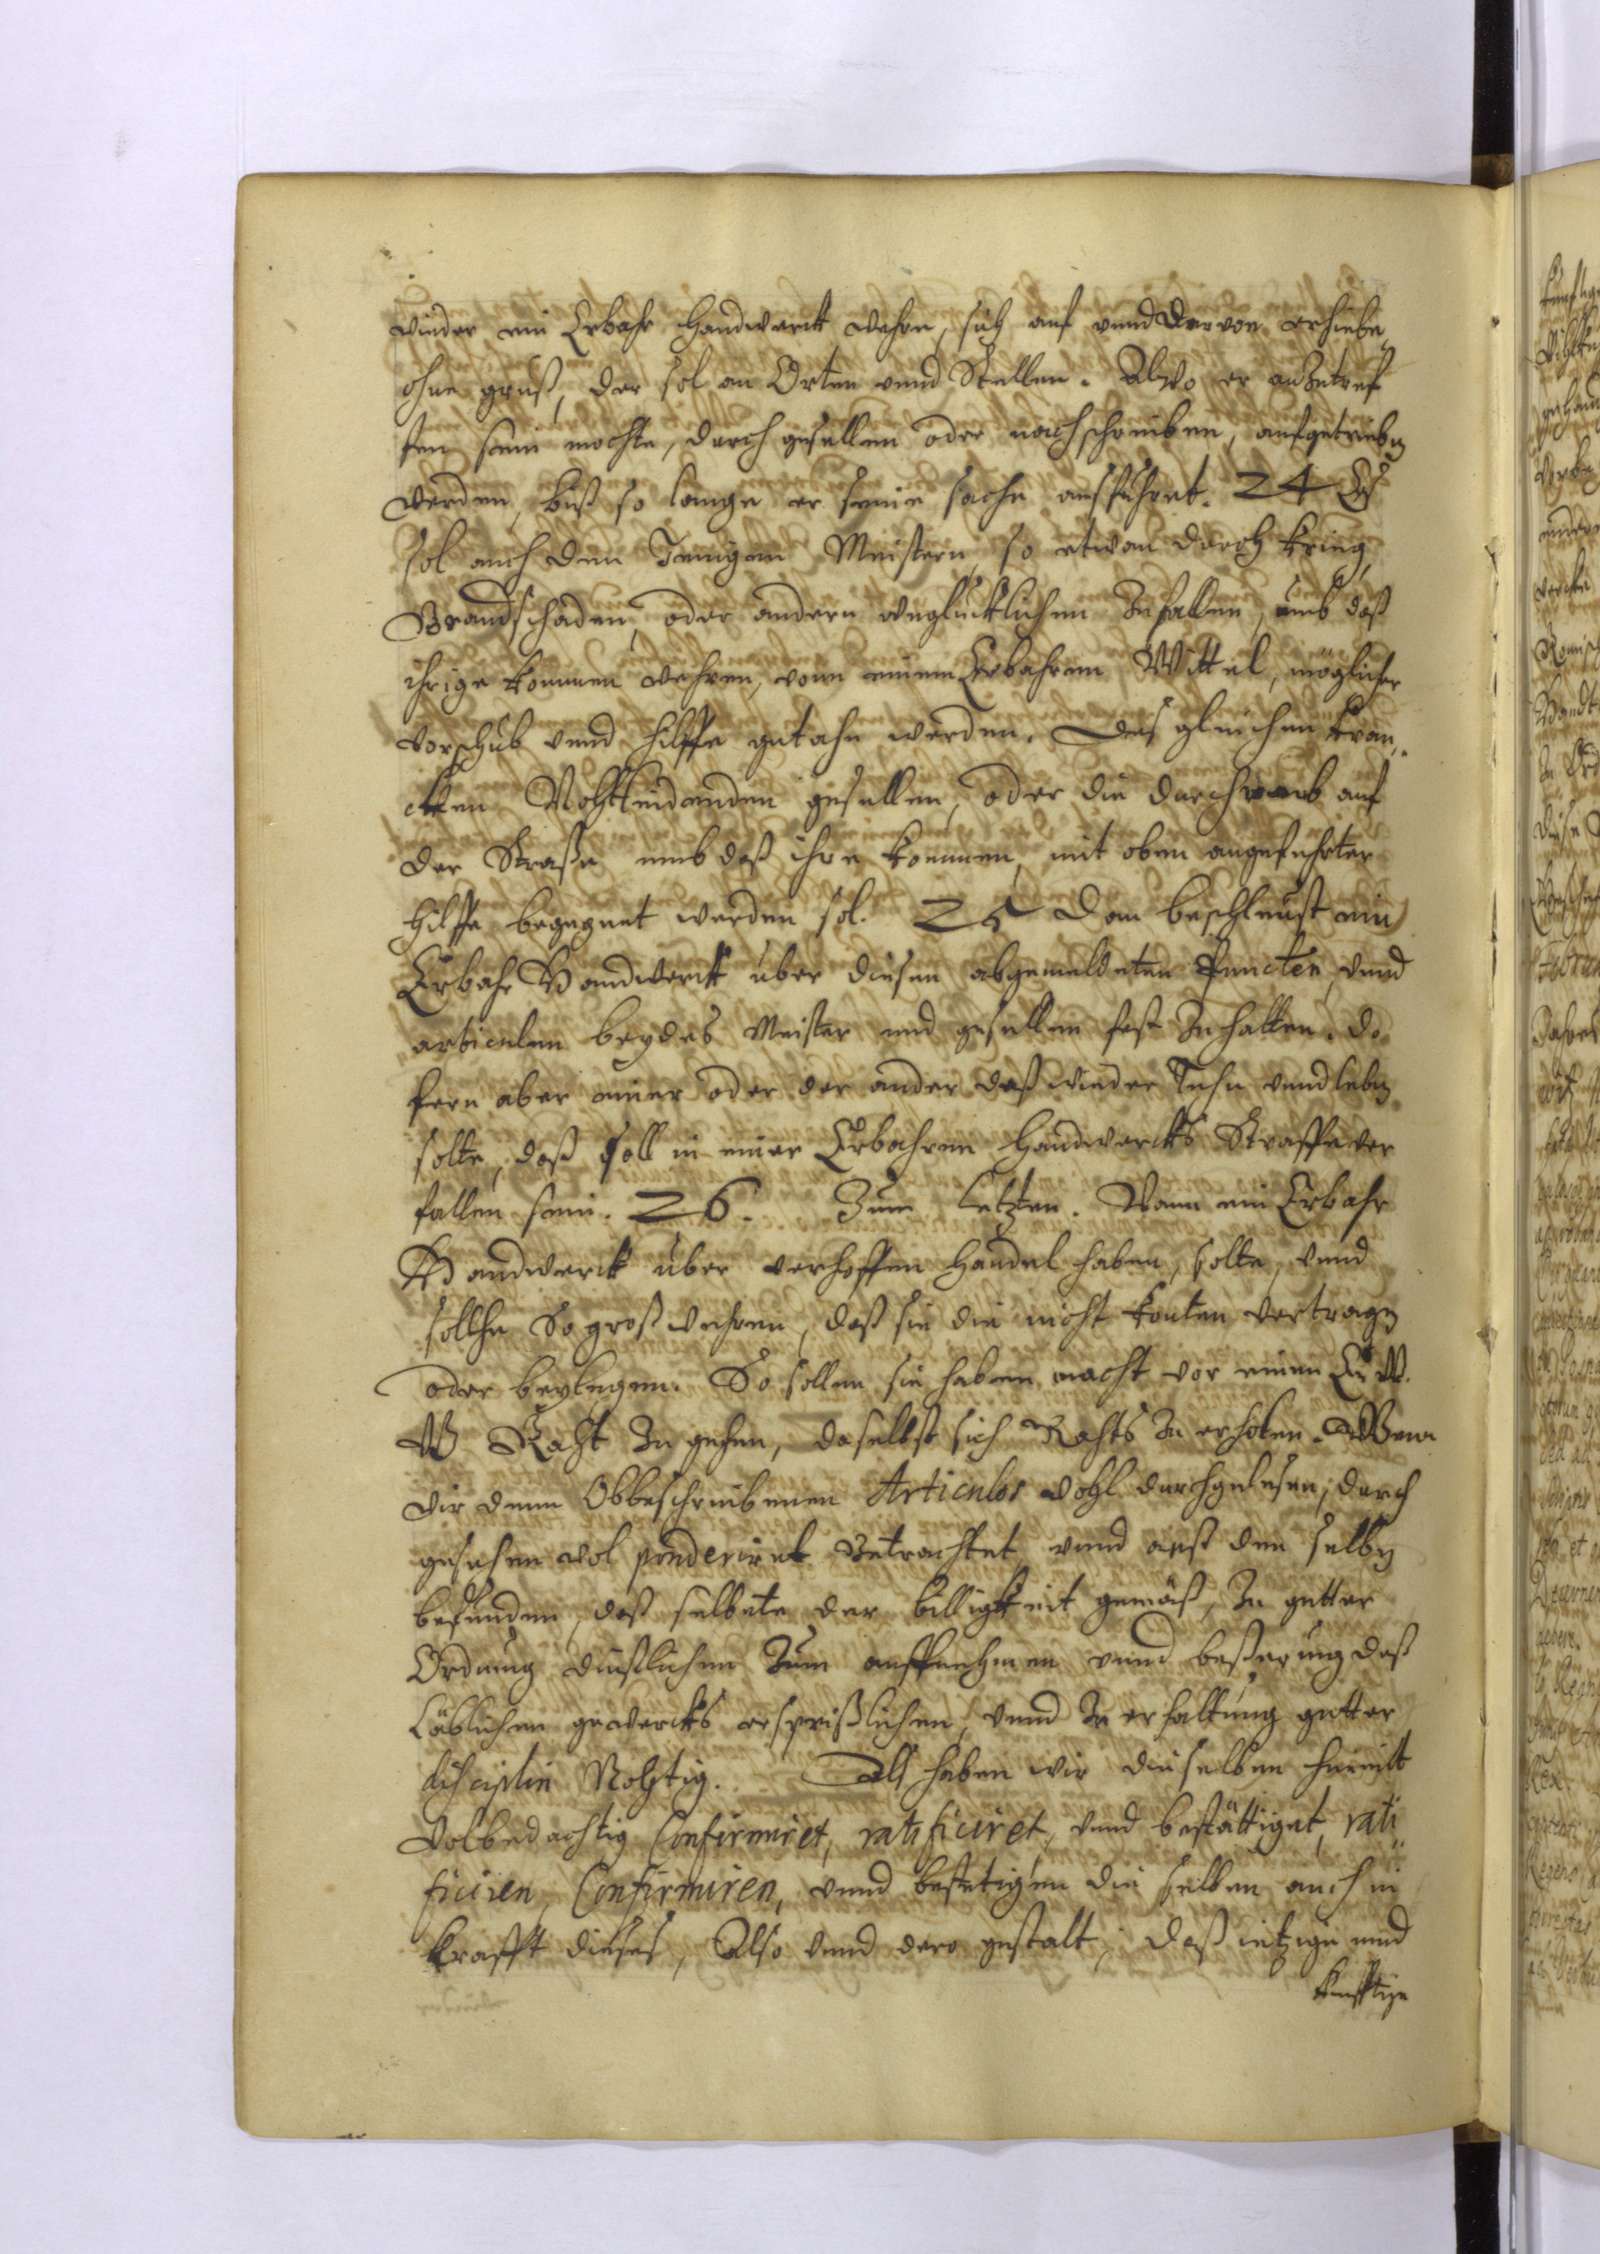 wieder ein Erbahr Handwerck wehre, sich auf unnd darvon erhiebe,
ohne gruß, der sol an Orten unnd Stellen. Alwo er anzutref
fen sein mochte, durch gesellen oder nachschreiben, aufgetrieben
werden, biß so lange er seine sache ausführet. 24 Es
sol auch den Jenigen Meistern, so etwan durch Krieg,
Brandschaden, oder andern unglücklichen Zufallen, umb daß
ihrige kommen wehren, vonn einem Erbahren Mittel, möglicher
vorschub unnd hilffe getahn werden. Des gleichen kran,,
cken Nohtleidenden gesellen, oder die durch raub auf
der Straße umb daß ihre kommen, mit oben angeführter
hilffe begegnet werden sol. 25 Dan beschleust ein
Erbahr Handwerck über diesen abgemeldeten Puncten, unnd
articulen beydes Meister und gesellen fest zu halten. Do
fern aber einer oder der ander daß wieder Tuhn unnd leben
solte, daß soll in einer Erbahren Handwercks Straffe ver
fallen sein. 26. Zum letzten. Wann ein Erbahr
Handwerck über verhoffen Handel haben, solte, unnd
solche So groß wehren, daß sie die nicht konten vertragen
oder beylegen. So sollen sie haben macht vor einen E. W.
W. Raht zu gehen, daselbst sich Rahts zu erholen. Wenn
wir denn Obbeschriebenen Articulos wohl durchgelesen, durch
gesehen wol ponderiret Betrachtet, unnd auß den selben
befunden, daß selbete der billigkeit gemäß, zu gutter
Ordnung dienßlichen zum auffnehmen unnd beßerung deß
Löblichen gewercks ersprißlichen, unnd zu erhaltung gutter
disciplin Nohtig. Alß haben wir dieselben hiemitt
Wolbedachtig Confirmiret, ratificiret, unnd bestättiget, rati
ficiren, Confirmiren, unnd bestetigen die selben auch in
krafft dieses, Also unnd dero gestalt, daß ietzige unnd
künfftige